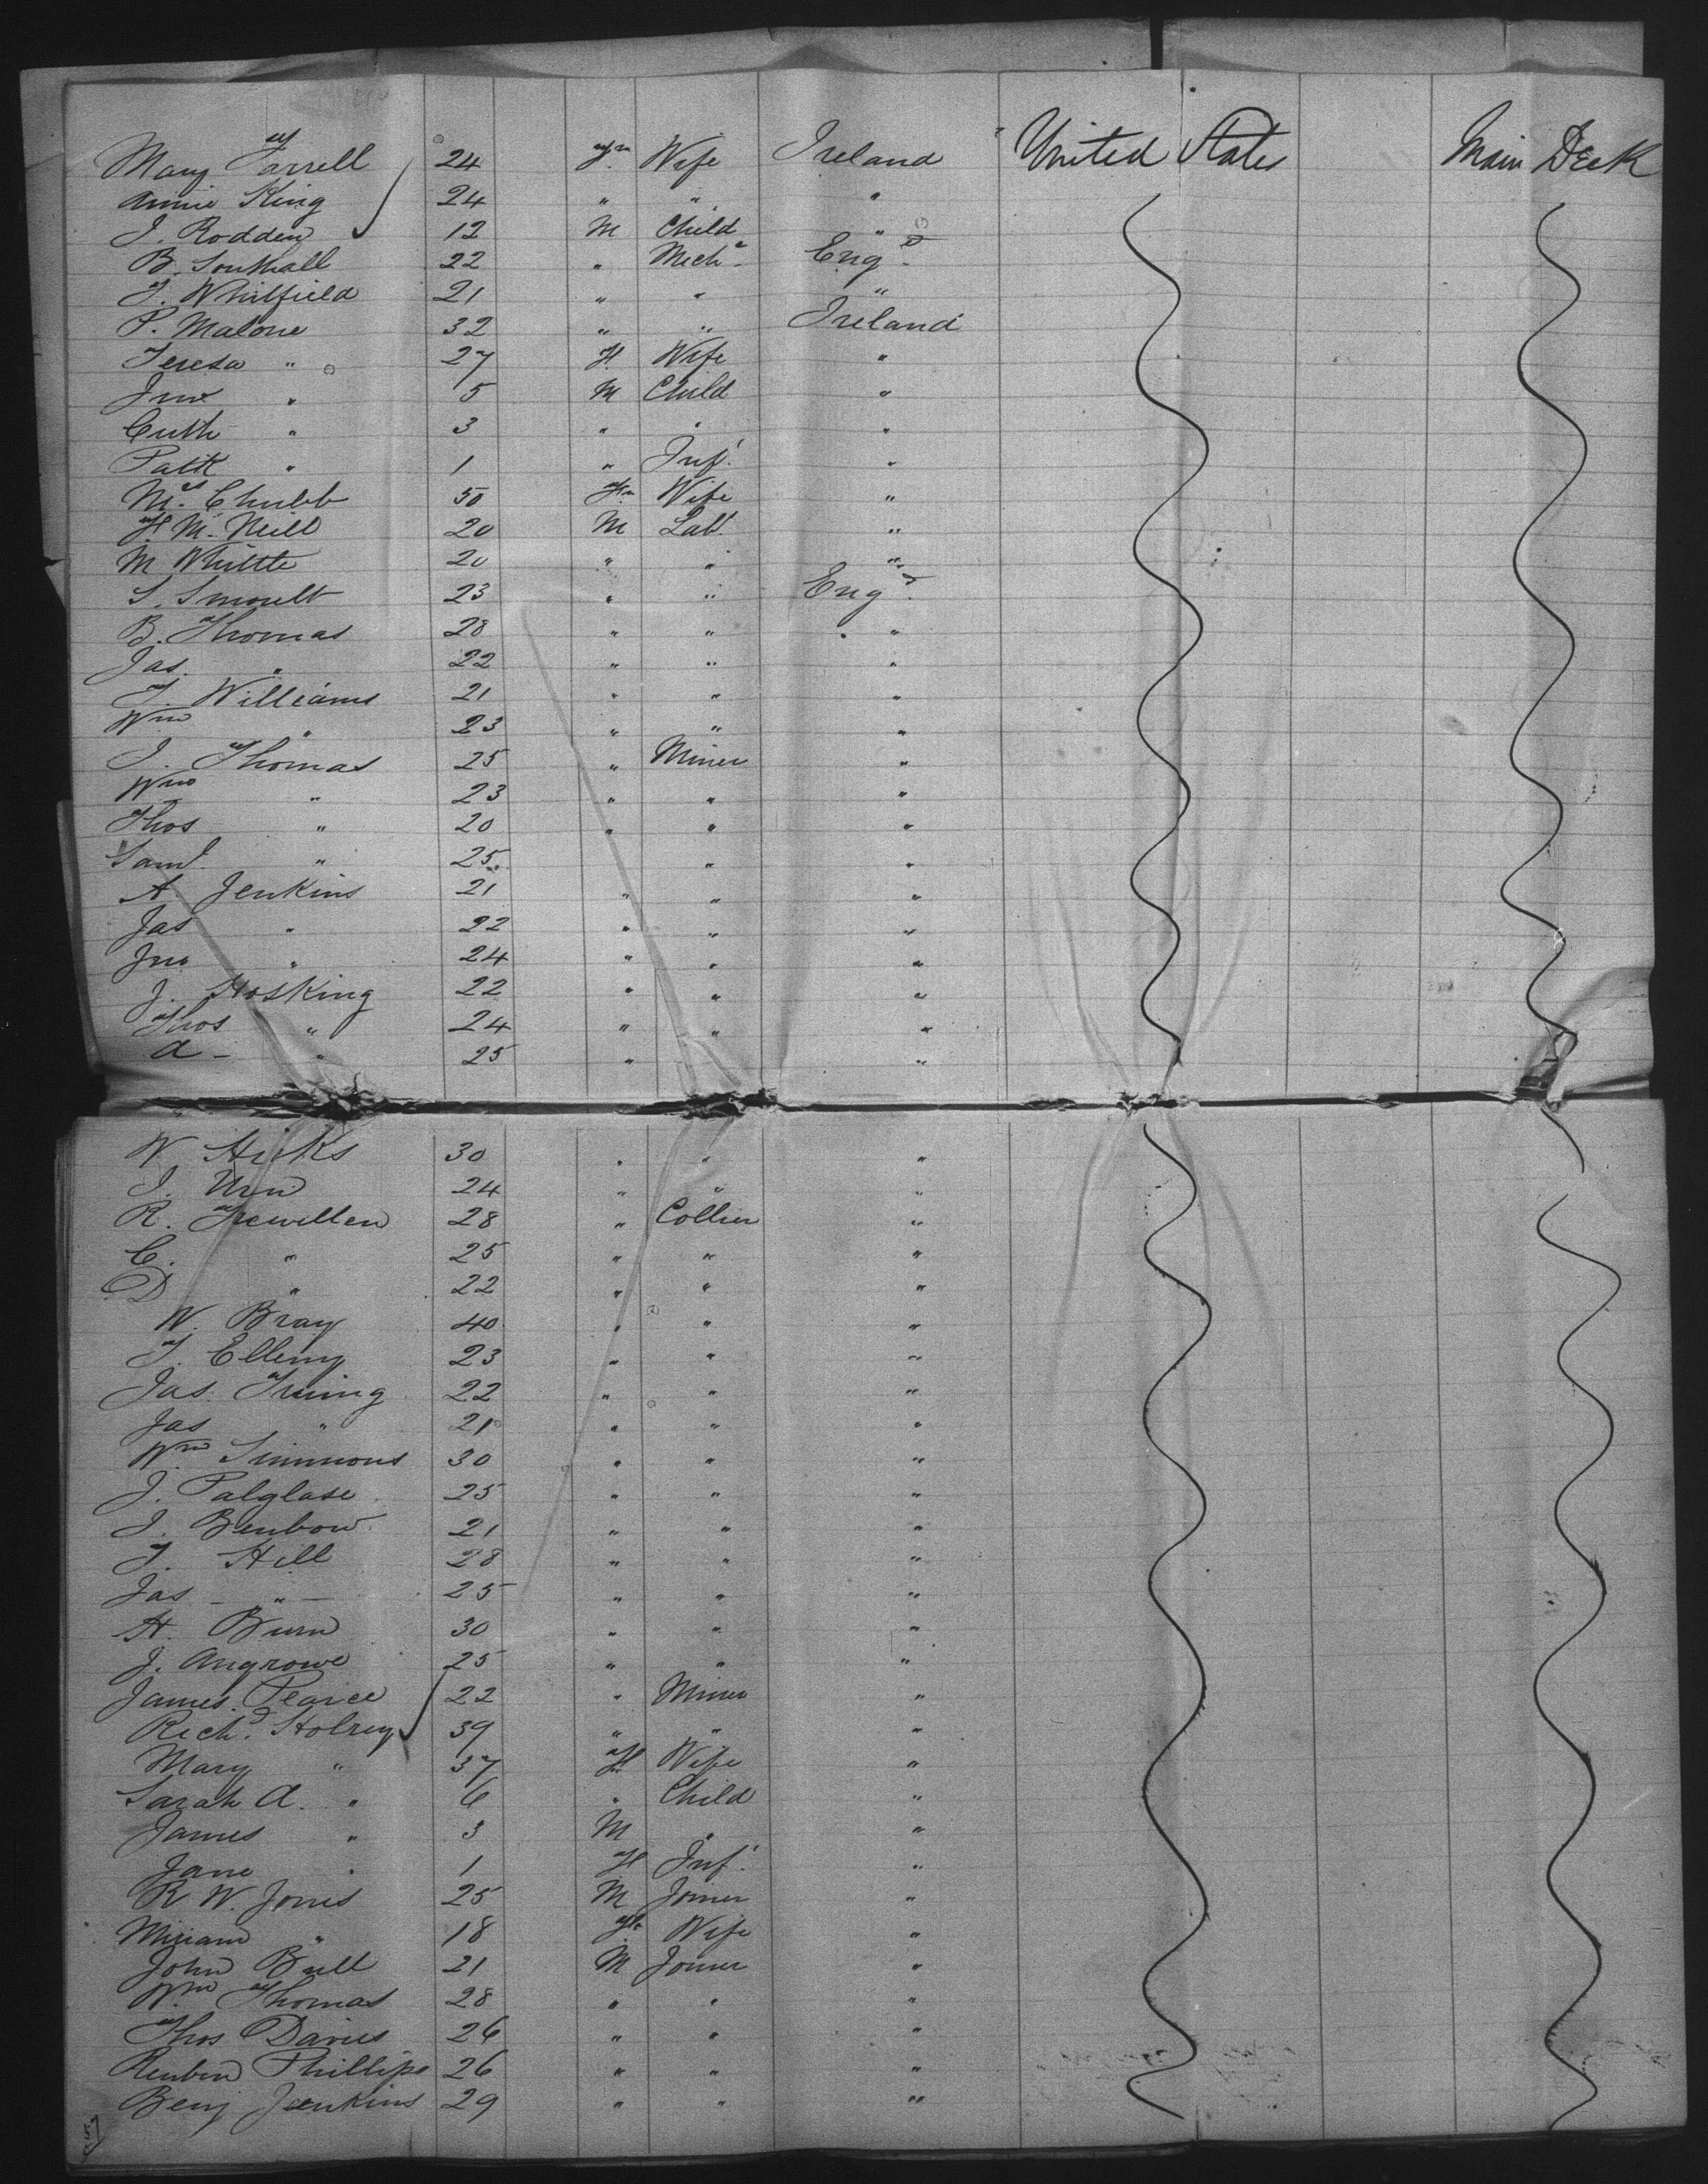 Mary Farrell 24 Fm Wife Ireland United States Main Deck
Annie King 24 " " "
J. Rodden 12 M Child "
B. Southall 22 " Mech. Engd
T. Whitfield 21 " " "
P. Malone 32 " " Ireland
Teresa " 27 F. Wife "
Jno " 5 M Child "
Cuth " 3 " " "
Patk " 1 " Inf. "
Mrs Chubb 50 Fm Wife "
H. Mc. Neill 20 M Labr "
M Whittle 20 " " "
S. Smoult 23 " " Engd.
B. Thomas 28 " " "
Jas. " 22 " " "
T. Williams 21 " " "
Wm " 23 " " "
J. Thomas 25 " Miner "
Wm " 23 " " "
Thos " 20 " " "
Saml. " 25 " "
A. Jenkins 21 " " "
Jas " 22 " " "
Jno " 24 " " "
J. Hosking 22 " " "
Thos " 24 " " "
A - " 25 " "
W Hicks 30 " " "
J. Uren 24 " " "
R. Trewillen 28 " Collier "
C. " 25 " " "
D " 22 " " "
W. Bray 40 " " "
T. Ellemy 23 " " "
Jas. Irving 22 " " "
Jas " 21 " " "
Wm Simmons 30 " " "
J. Palglase 25 " " "
J. Benbow 21 " " "
T. Hill 28 " " "
Jas - " - 25 " " "
H. Burn 30 " " "
J. Angrowe 25 " " "
James Pearce 22 " Miner "
Richd. Holrey 39 " " "
Mary " 37 F Wife "
Sarah A. " 6 " Child "
James " 3 M " "
Jane " 1 F Inf. "
R W. Jones 25 M Joiner "
Miriam " 18 F. Wife "
John Bull 21 M Joiner "
Wm Thomas 28 " " "
Thos Davies 26 " " "
Reuben Phillips 26 " " "
Benj Jenkins 29 " " "